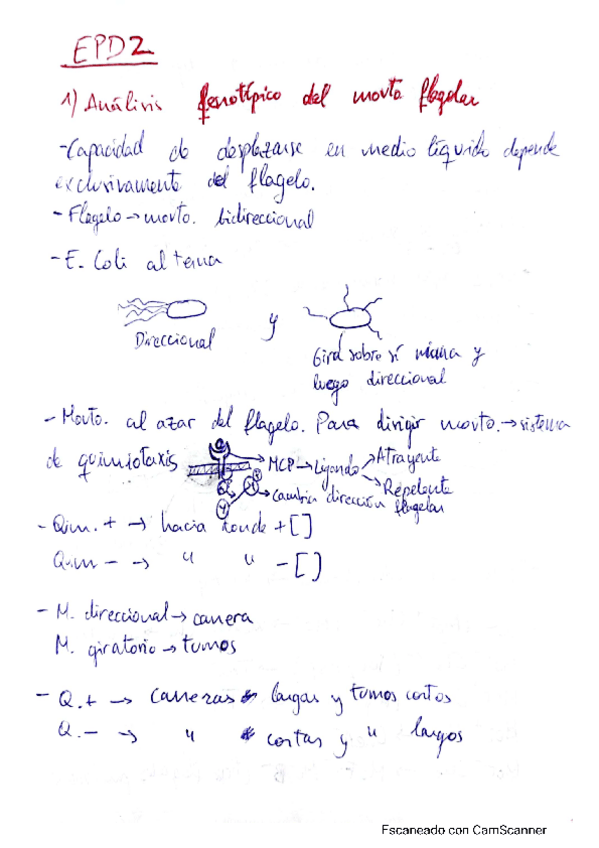 EPD2
1) Análisis fenotípico del movto flagelar
-Capacidad de desplazarse en medio líquido depende
exclusivamente del flagelo.
- Flagelo → movto. bidireccional
- E. Coli alterna
Direccional y Gira sobre sí misma y
luego direccional
- Movto. al azar del flagelo. Para dirigir movto. → sistema
de quimiotaxis → MCP → Ligando → Atrayente
→ Repelente
→ Cambia dirección flagelar
- Quim. + → hacia donde + []
Quim - → " " - []
- M. direccional → carrera
M. giratorio → tumos
- Q. + → carreras largas y tumos cortos
Q. - → " cortas y " largos
Escaneado con CamScanner